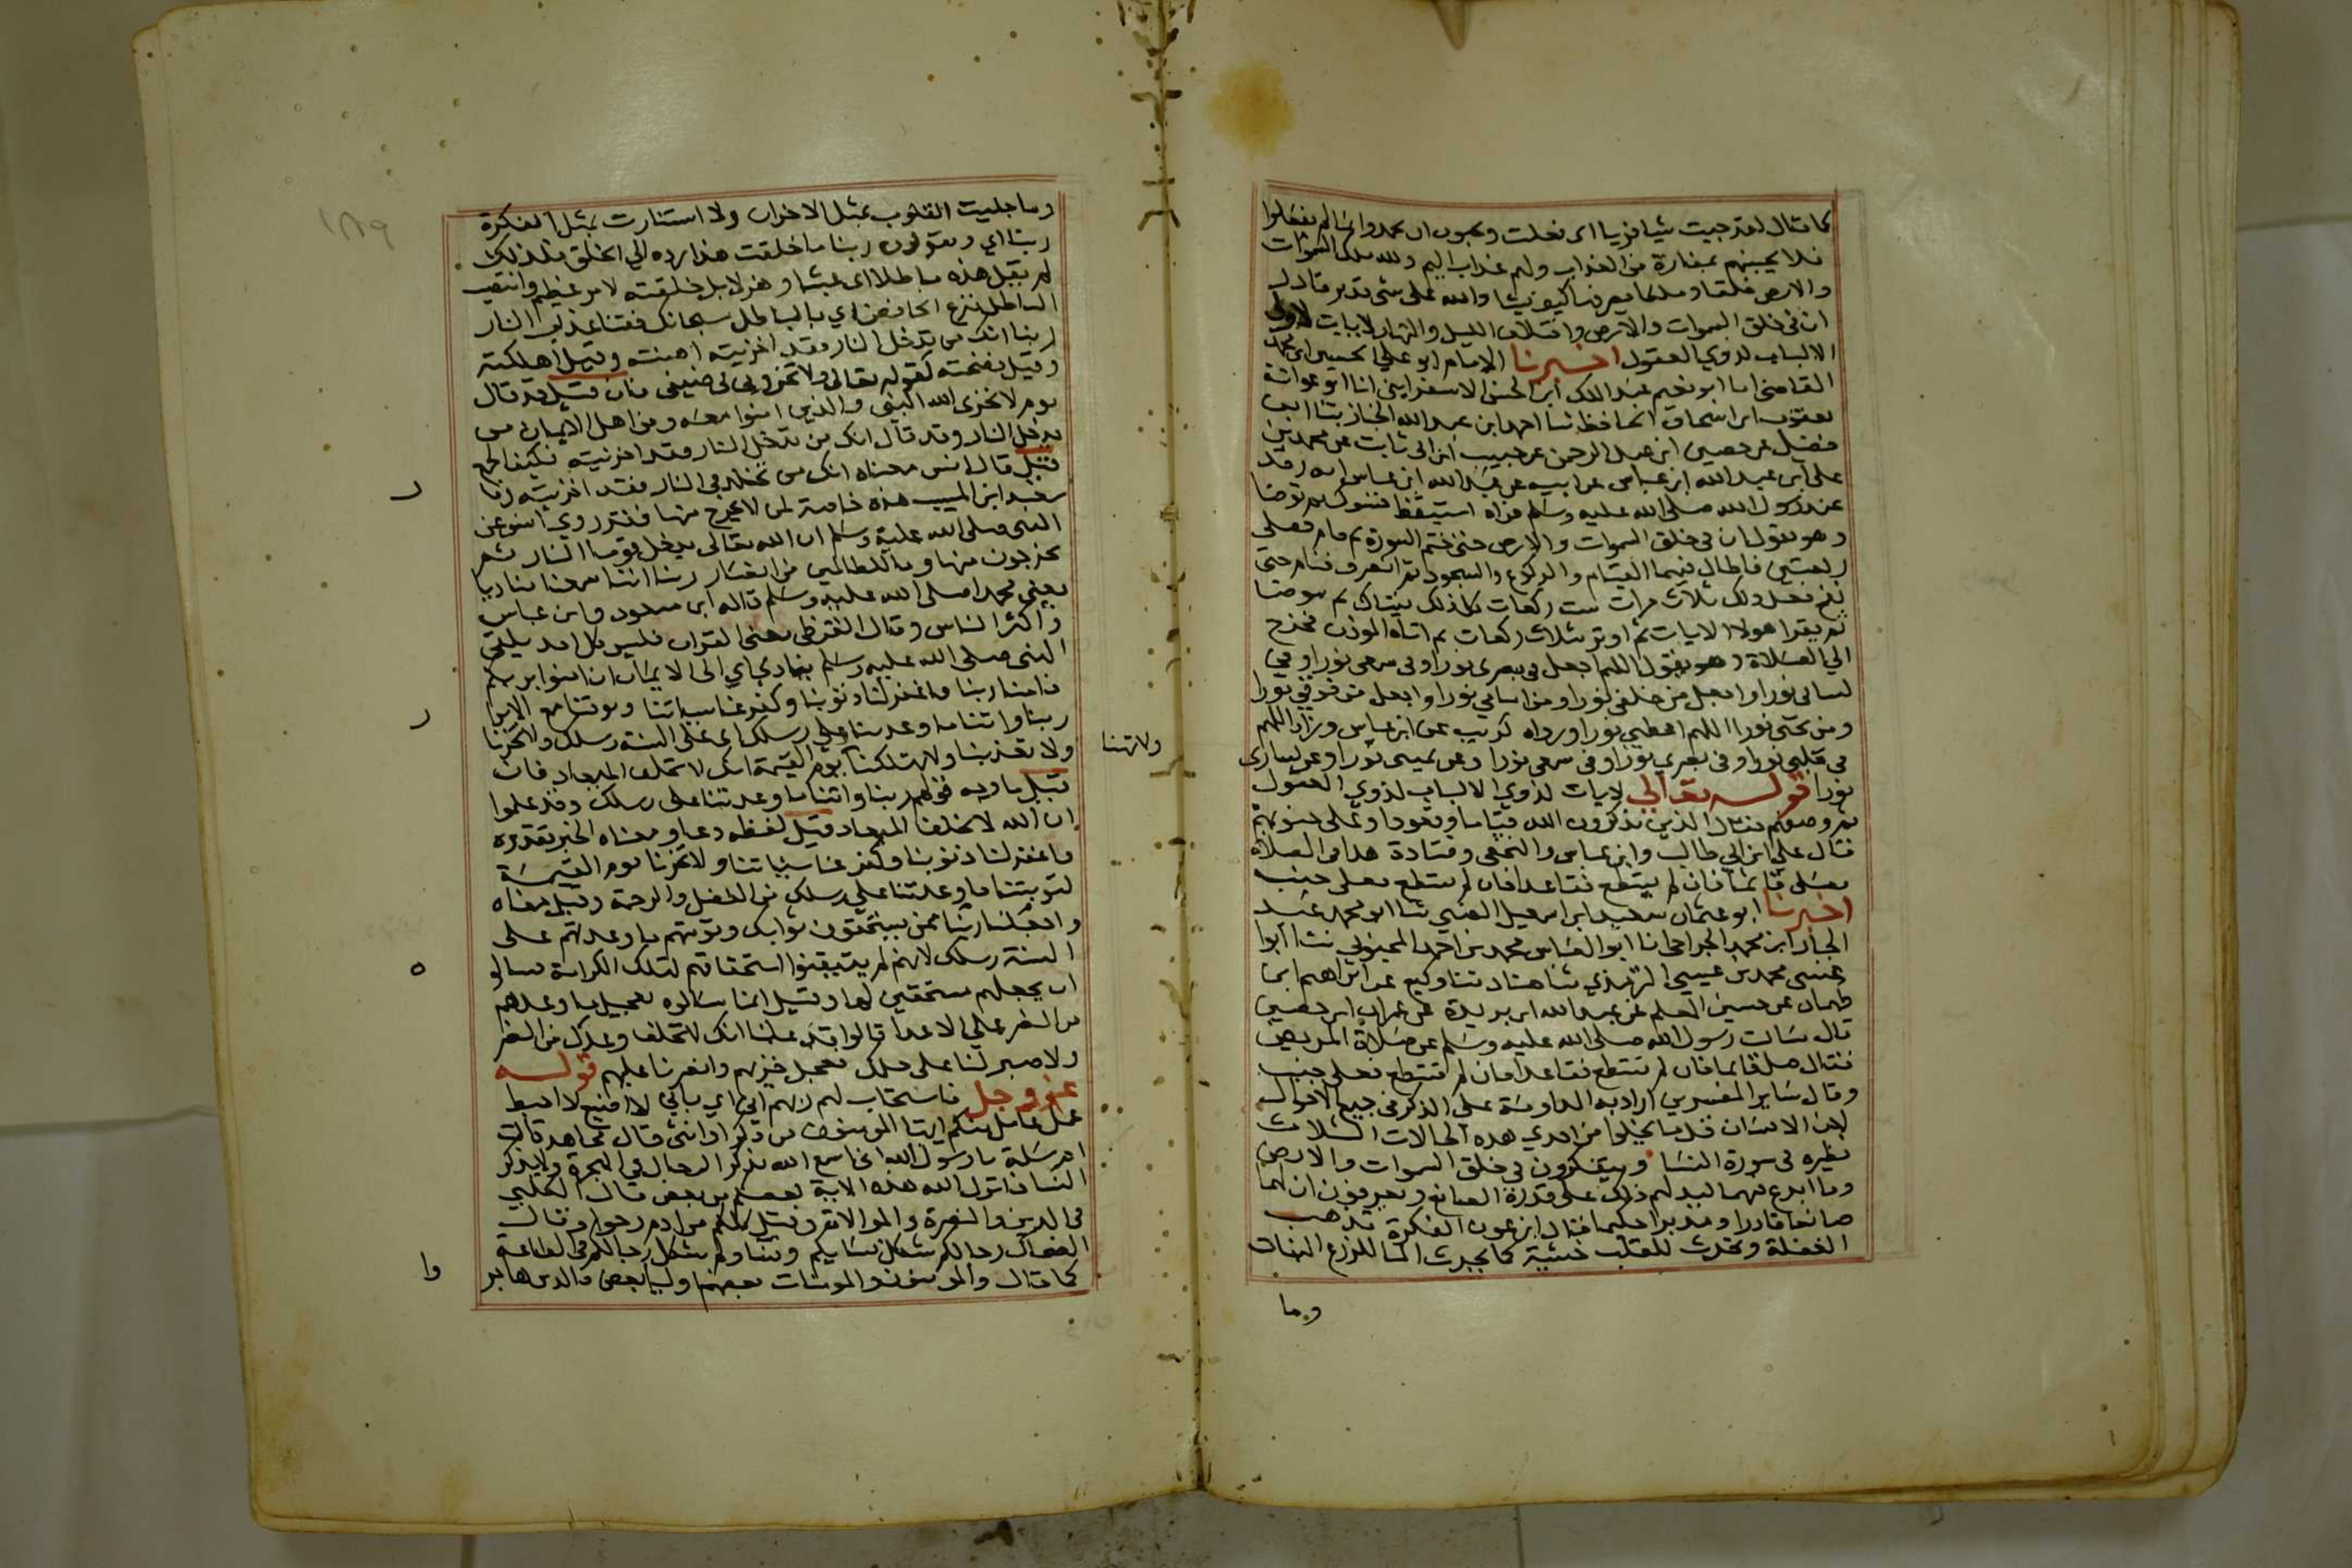 كما قال لقد جيت شيا فريا اى فعلت ويحبون ان يحمدوا بما لم يفعلوا
فلا تحسبنهم بمفازة من العذاب ولهم عذاب اليم ولله ملك السموات
والارض خلقا وملكا يصرفها كيف يشا والله على شى قدير قادر
ان فى خلق السموات والارض واختلاف الليل والنهار لايات لاولى
الالباب لذوي العقول اخبرنا الامام ابو علي الحسين ابن محمد
القاضى انا ابو نعيم عبد الملك ابن الحسن الاسفراينى انا ابو عوانة
يعقوب ابن اسحاق الحافظ ثنا احمد ابن عبد الجبار ثنا ابن
فضيل عن حصين ابن عبد الرحمن عن حبيب ابن ابى ثابت عن محمد بن
على ابن عبد الله ابن عباس عن ابيه عن عبد الله ابن عباس انه رقد
عند رسول الله صلى الله عليه وسلم فراه استيقظ فتسوك ثم توضا
وهو يقول ان فى خلق السموات والارض حتى ختم السورة ثم قام فصلى
ركعتين فاطال فيهما القيام والركوع والسجود ثم انصرف فنام حتى
نفخ فعل ذلك ثلاث مرات ست ركعات كل ذلك يستاك ثم يتوضا
ثم يقرا هولا الايات ثم اوتر بثلاث ركعات ثم اتاه الموذن فخرج
الي الصلاة وهو يقول اللهم اجعل فى بصرى نورا وفى سمعى نورا وفي
لسانى نورا واجعل من خلفى نورا ومن امامي نورا واجعل من فوقي نورا
ومن تحتى نورا اللهم اعطنى نورا ورواه كريب عن ابن عباس وزاد اللهم
فى قلبى نورا وفى بصري نورا وفى سمعى نورا وعن يمينى نورا وعن يسارى
نورا قوله تعالي لايات لذوي الالباب لذوي العقول
ثم وصفهم فقال الذين يذكرون الله قياما وقعودا وعلى جنوبهم
فقال علي ابن ابي طالب وابن عباس والنخعى وقتادة هذا فى الصلاة
يصلى قائما فان لم يستطع فقاعدا فان لم يستطع فعلى جنب
اخبرنا ابو عثمان سعيد ابن اسمعيل الضبى ثنا ابو محمد عبد
الجبار ابن محمد الجراحى انا ابو العباس محمد بن احمد المحبوبى ثنا ابوا
عيسى محمد بن عيسي الترمذي ثنا هناد ثنا وكيع عن ابراهيم ابن
طهمان عن حسين المعلم عن عبد الله ابن بريدة عن عمران ابن حصين
قال سالت رسول الله صلى الله عليه وسلم عن صلاة المريض
فقال صل قايما فان لم تستطع فقاعدا فان لم تستطع فعلى جنب
وقال ساير المفسرين اراد به المداومة على الذكر فى جميع الاحوال
لان الانسان قل ما يخلوا من احدي هذه الحالات الثلاث
نظيره فى سورة النسا ويتفكرون فى خلق السموات والارض
وما ابدع فيهما ليدلهم ذلك على قدرة الصانع ويعرفون ان لهما
صانعا قادرا ومدبرا حكيما فقال ابن عون الفكرة تذهب
الغفلة وتحدث للقلب خشية كما يحدث الما للزرع النبات
وما
وما جليت القلوب بمثل الاحزان ولا استنارت بمثل الفكرة
ربنا اي ويقولون ربنا ما خلقت هذا رده الي الخلق فلذلك
لم يقل هذه باطلا اى عبثا وهزلا بل خلقته لامر عظيم وانتصب
الباطل بنزع الخافض اي بالباطل سبحانك فقنا عذاب النار
ربنا انك من تدخل النار فقد اخزيته اهنته وقيل اهلكته
وقيل فضحته لقوله تعالى ولا تخزونى فى ضيفى فان قيل قد قال
يوم لا يخزى الله النبى والذين امنوا معه ومن اهل الايمان من
يدخل النار وقد قال انك من تدخل النار فقد اخزيته فكيف الجمع
قيل قال انس معناه انك من تخلد فى النار فقد اخزيته وقا
سعيد ابن المسيب هذه خاصة لمن لا يخرج منها فقد روي انس عن
النبى صلى الله عليه وسلم ان الله تعالى يدخل قوما النار ثم
يخرجون منها وما للظالمين من انصار ربنا اننا سمعنا مناديا
يعنى محمدا صلى الله عليه وسلم قاله ابن مسعود وابن عباس
واكثر الناس وقال القرظى يعنى القران فليس كل احد يلقى
النبى صلى الله عليه وسلم ينادي اي الى الايمان ان امنوا بربكم
فامنا ربنا فاغفر لنا ذنوبنا وكفر عنا سيئاتنا وتوفنا مع الابرار
ربنا واتنا ما وعدتنا على رسلك اى على السنة رسلك ولا تخزنا
ولا تعذبنا ولا تهلكنا يوم القيمة انك لا تخلف الميعاد فان
ولا تهنا
قيل ما وجه قولهم ربنا واتنا ما وعدتنا على رسلك وقد علموا
ان الله لا يخلف الميعاد قيل لفظه دعا ومعناه الخبر تقديره
فاغفر لنا ذنوبنا وكفر عنا سيئاتنا ولا تخزنا يوم القيمة
لتوتينا ما وعدتنا علي رسلك من الفضل والرحمة وقيل معناه
واجعلنا ربنا ممن يستحقون ثوابك وتوتيهم ما وعدتهم على
السنة رسلك لانهم لم يتيقنوا استحقاقهم لتلك الكرامة فسالو
ان يجعلهم مستحقين لها وقيل انما سالوه تعجيل ما وعدهم
من النصر علي الاعدا قالوا قد علمنا انك لا تخلف وعدك من النصر
ولا صبر لنا على حلمك فعجل خزيهم وانصرنا عليهم قوله
عز وجل فاستجاب لهم ربهم انى اي باني لا اضيع لا احبط
عمل عامل منكم ايها المومنون من ذكر او انثى قال مجاهد قالت
ام سلمة يا رسول الله انى اسمع الله يذكر الرجال في الهجرة ولا يذكر
النسا فانزل الله هذه الاية بعضكم من بعض قال الكلبي
فى الدين والنصرة والموالاة وقيل كلكم من ادم وحوا وقال
الضحاك رجالكم شكل نسايكم ونساوكم شكل رجالكم فى الطاعة
كما قال والمومنون والمومنات بعضهم اوليا بعض فالذين هاجر
وا
١٨٩